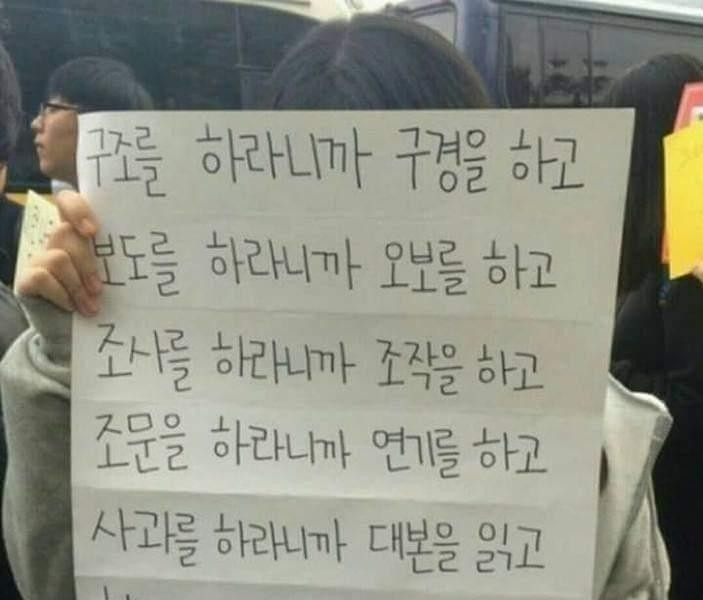 구조를 하라니까 구경을 하고
보도를 하라니까 오보를 하고
조사를 하라니까 조작을 하고
조문을 하라니까 연기를 하고
사과를 하라니까 대본을 읽고